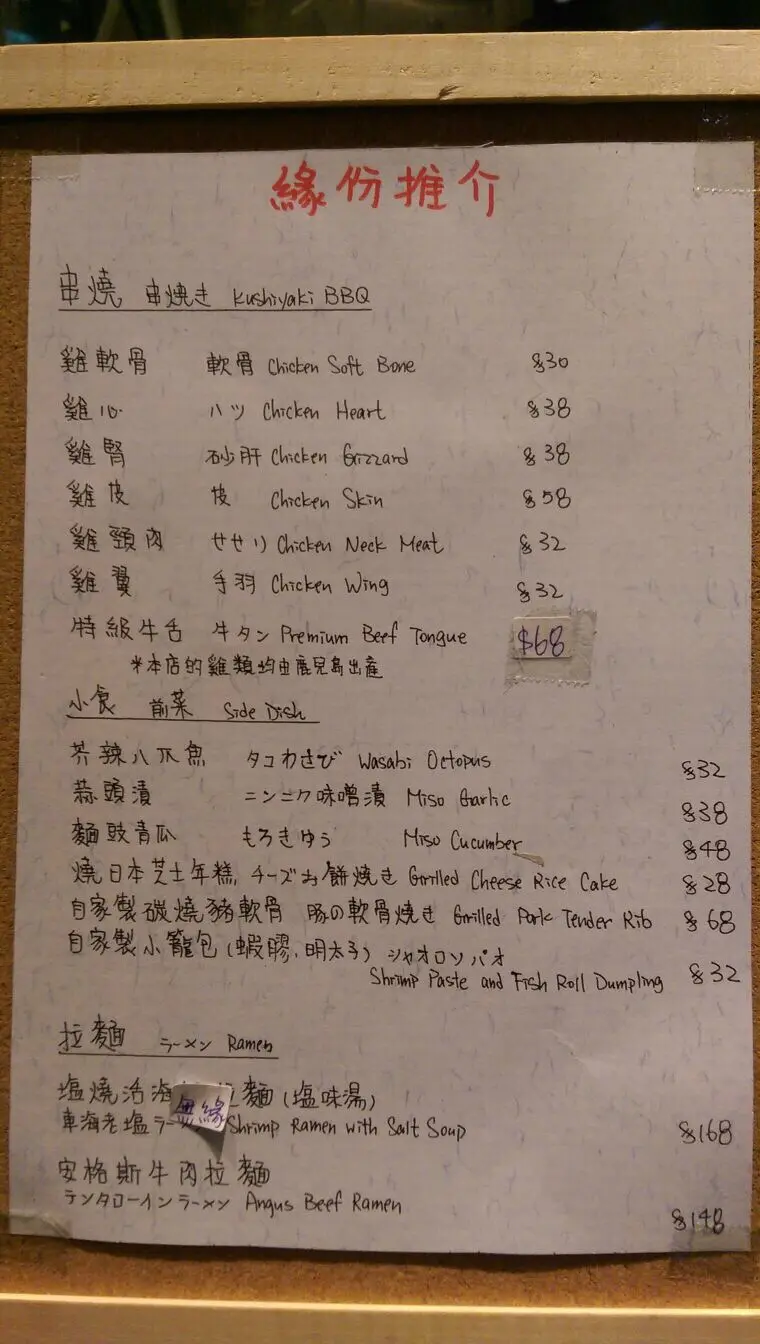 緣份推介
串燒 串焼き Kushiyaki BBQ
雞軟骨 軟骨 Chicken Soft Bone $30
雞心 ハツ Chicken Heart $38
雞腎 砂肝 Chicken Grizzard $38
雞皮 皮 Chicken Skin $58
雞頸肉 せせり Chicken Neck Meat $32
雞翼 手羽 Chicken Wing $32
特級牛舌 牛タン Premium Beef Tongue $68
*本店的雞類均由鹿兒島出產
小食 前菜 Side Dish
芥辣八爪魚 タコわさび Wasabi Octopus $32
蒜頭漬 ニンニク味噌漬 Miso Garlic $38
麵豉青瓜 もろきゆう Miso Cucumber $48
燒日本芝士年糕 チーズお餅焼き Grilled Cheese Rice Cake $28
自家製碳燒豬軟骨 豚の軟骨焼き Grilled Pork Tender Rib $68
自家製小籠包(蝦膠,明太子) シャオロンパオ
Shrimp Paste and Fish Roll Dumpling $32
拉麵 ラーメン Ramen
塩燒活海 麵(塩味湯)
無緣
車海老塩ラー Shrimp Ramen with Salt Soup $168
安格斯牛肉拉麵
テンタローインラーメン Angus Beef Ramen $148